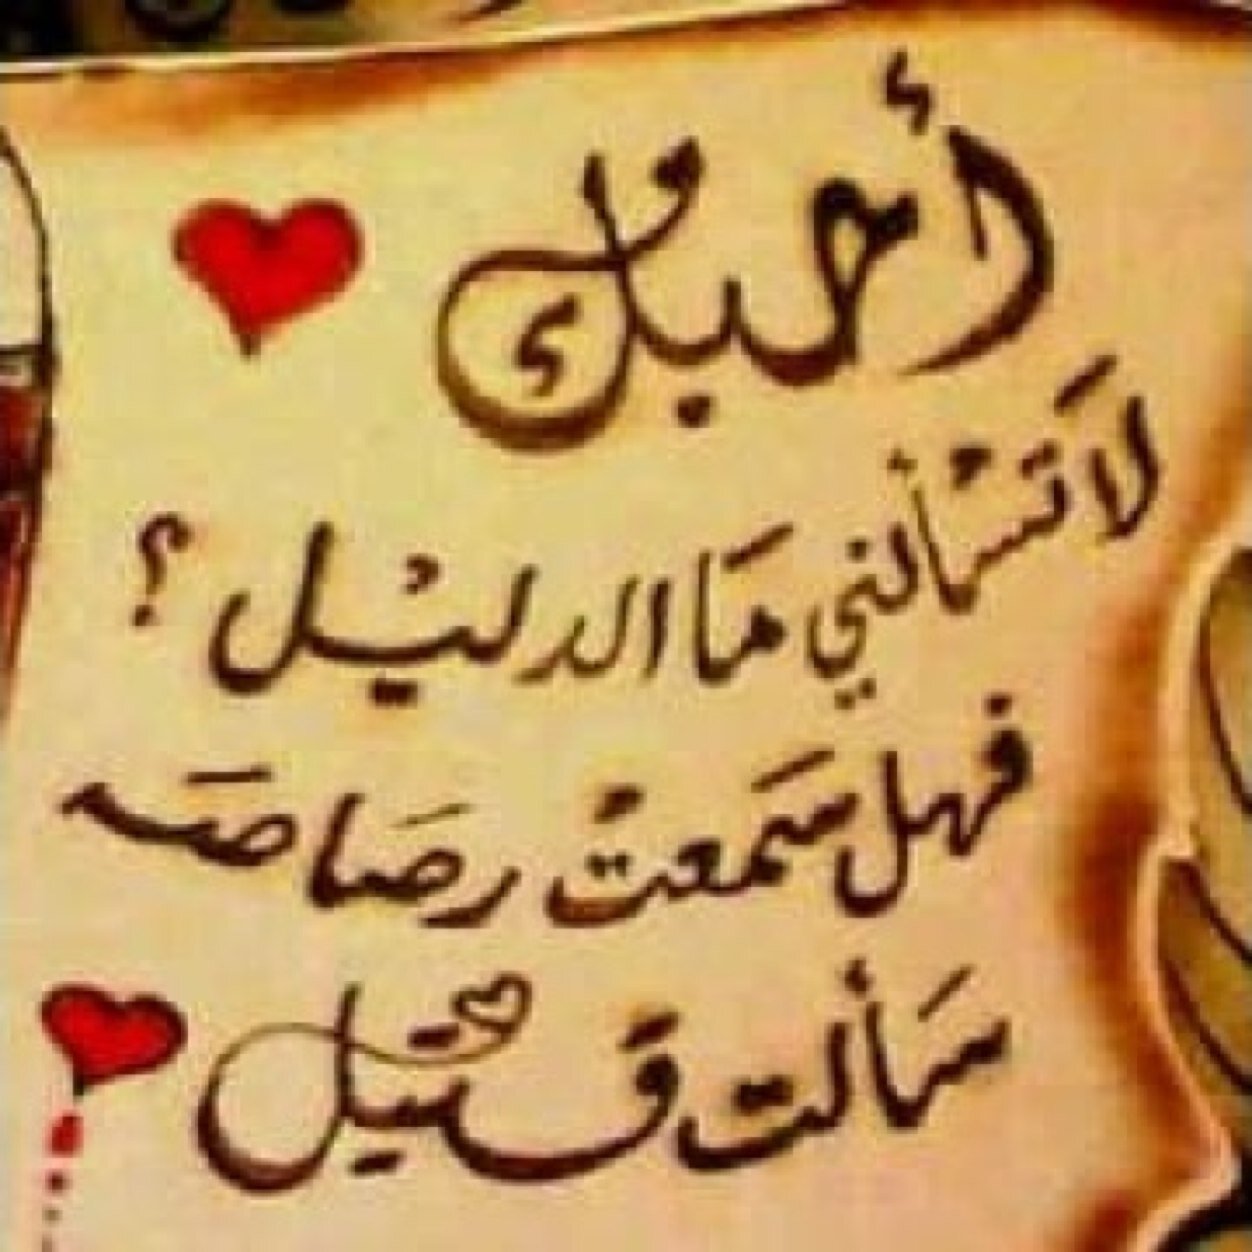 أحبك
لَا تسْألني مَا الدليْل ؟
فهل سَمعتْ رصَاصَه
سَألت قتيْل